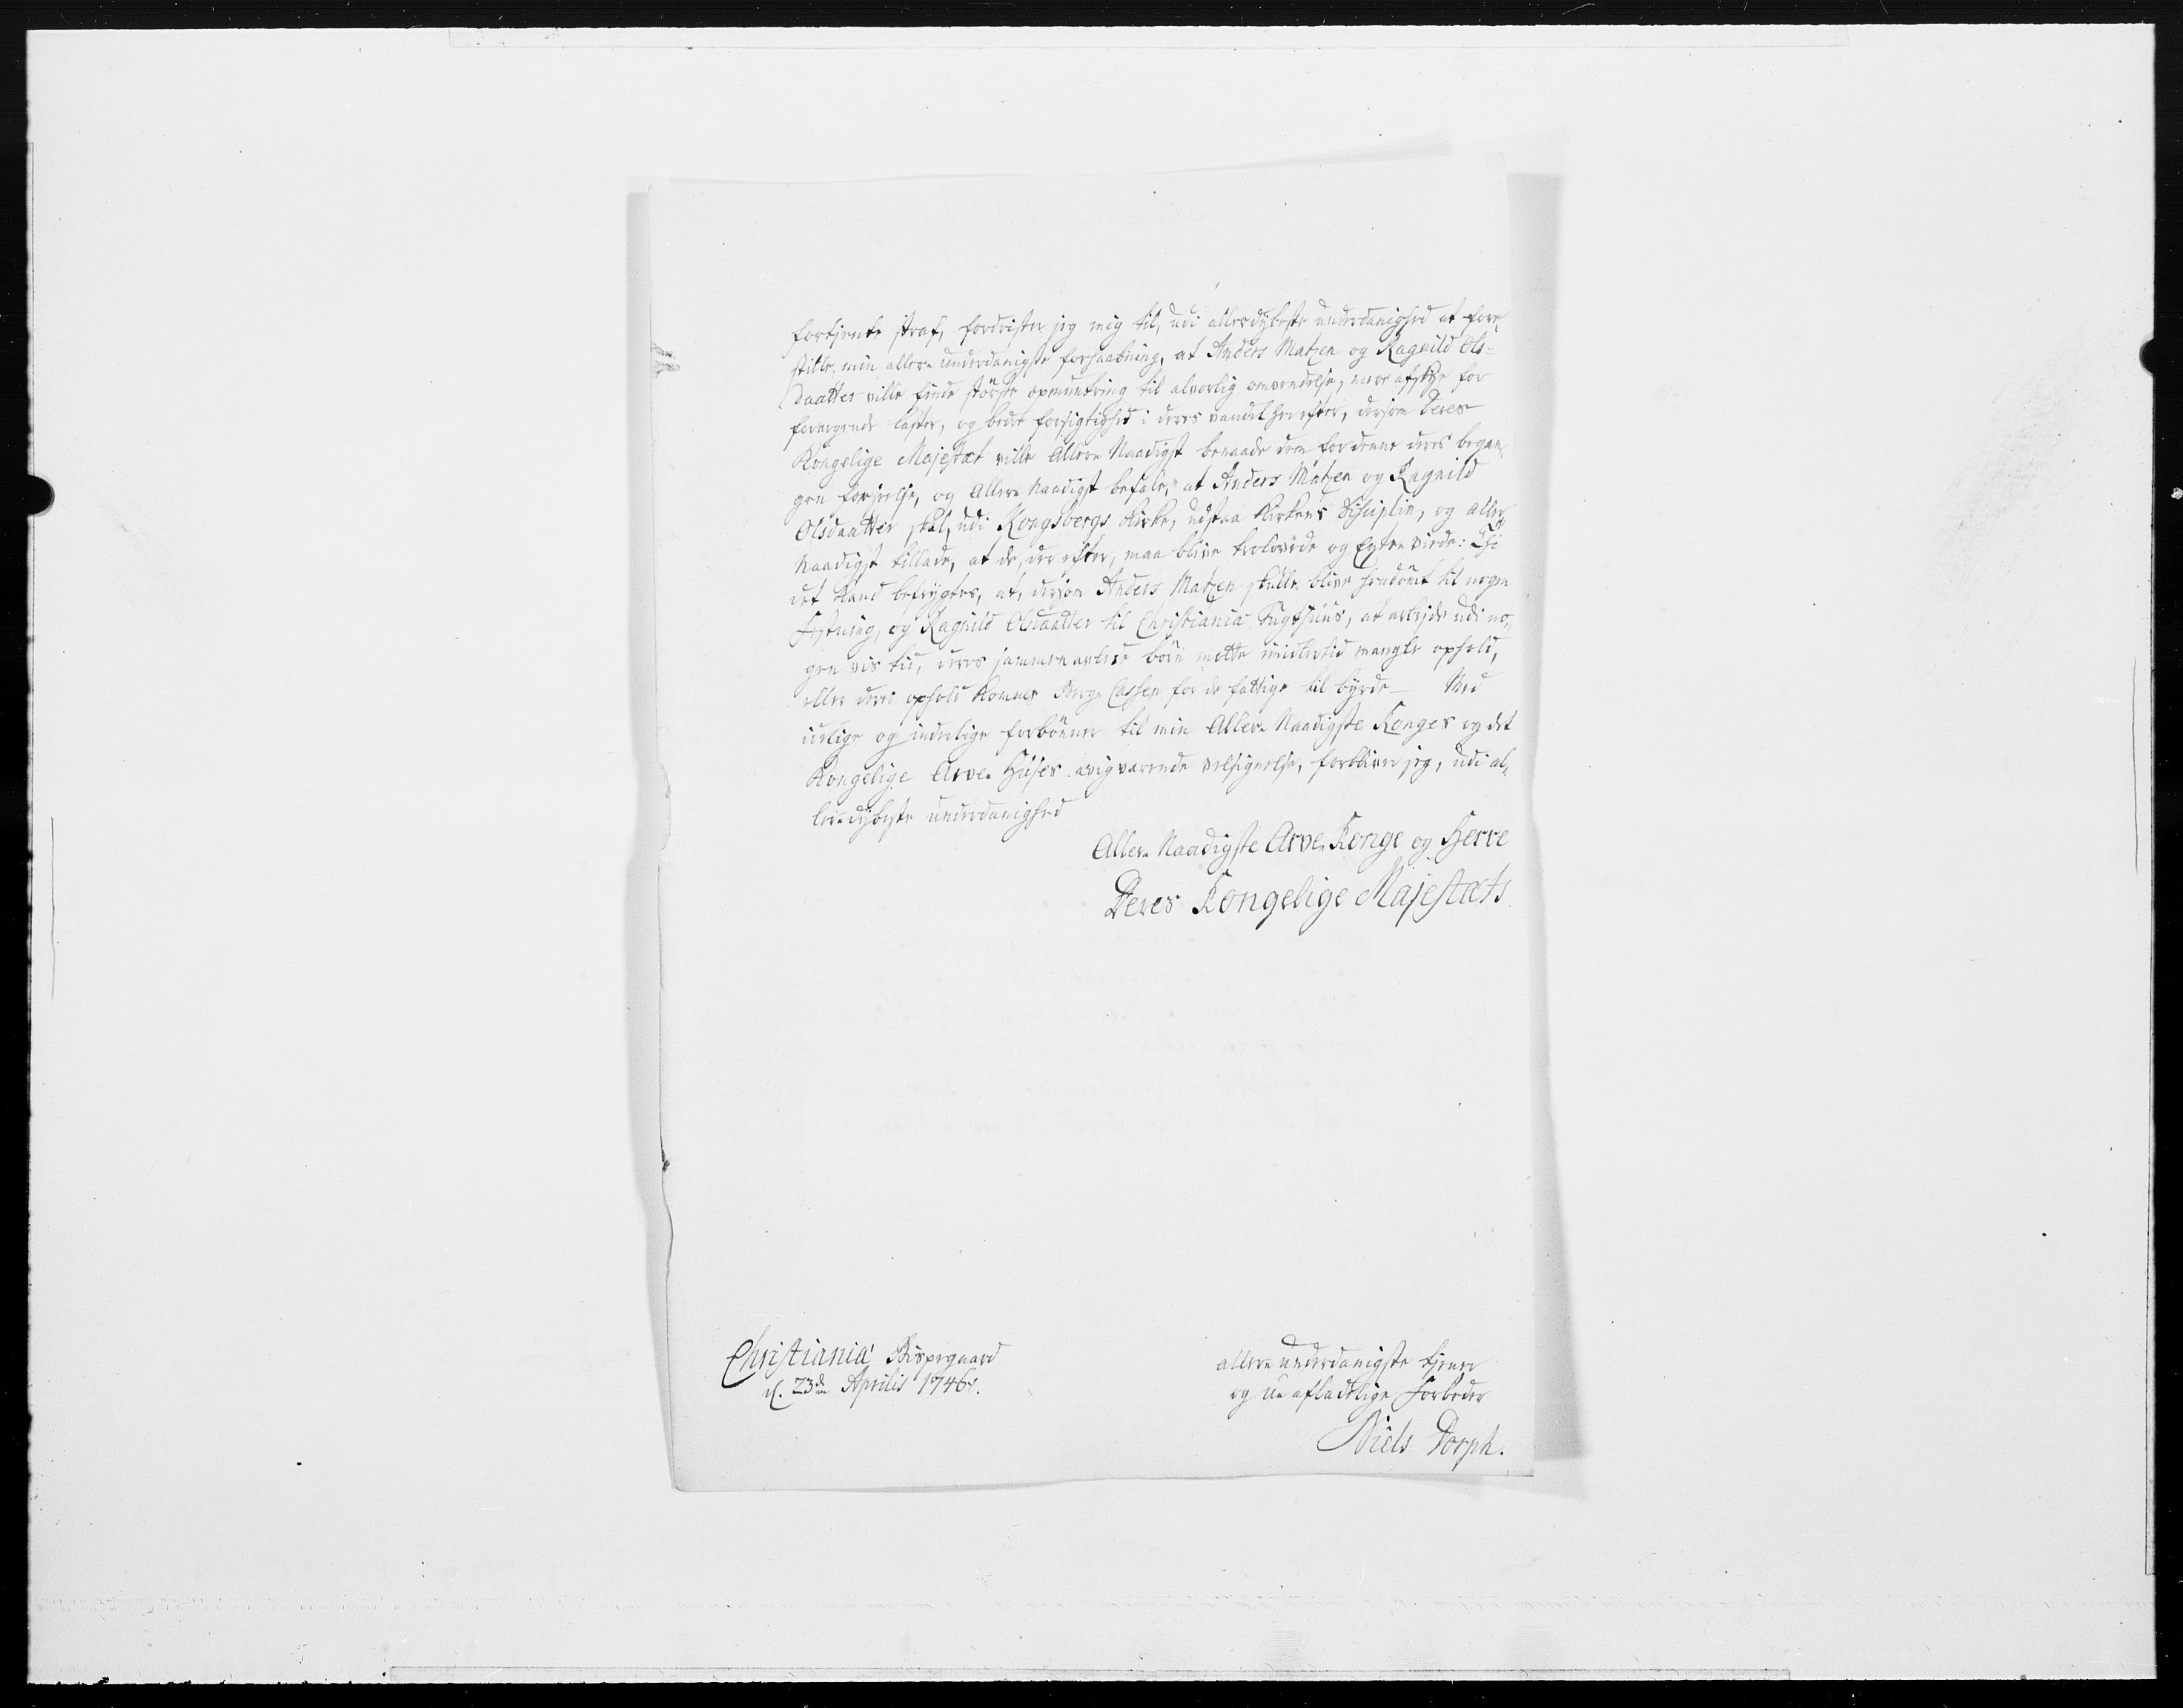 fortjente straf, fordrister jeg mig til, udi allerdybeste underdanighed at fore„
stille, min aller„underdanigste forhaabning, at Anders Matzen og Ragnild Ols=
daatter ville finde störste opmuntring til alvorlig omvendelse, meere afskye for
forargende laster, og bedre forsigtighed i deres vandel herefter, dersom Deres
Kongelige Majestæt ville Aller„Naadigst benaade dem for denne deres began„
gen forseelse, og Aller„Naadigst befale, at Anders Matzen og Ragnild
Olsdaatter skal, udi Kongsbergs Kirke, udstaa Kirkens Disciplin, og Aller„
Naadigst tillade, at de, der efter, maa blive trolovede og Egte„viede: Thi
det kand befrygtes, at, dersom Anders Matzen skulle blive hendömt til nogen
Festning, og Ragnild Olsdaatter til Christiania Tugthuus, at arbejde udi no„
gen vis tid, deres sammenavlede börn motte imidlertid mangle ophold,
eller deres ophold komme Berg„Cassen for de fattige til byrde — Med
idelige og inderlige forbönner til min Aller„Naadigste Konges og det
Kongelige Arve„Huses ævigvarende velsignelse, forbliver jeg, udi al„
ler„dybeste underdanighed
Aller„Naadigste Arve„Konge og Herre
Deres Kongelige Majestæts
Christiania Bispegaard
d. 23de Aprilis 1746.
aller„underdanigste tjener
og uafladelige Forbeder
Niels Dorph.